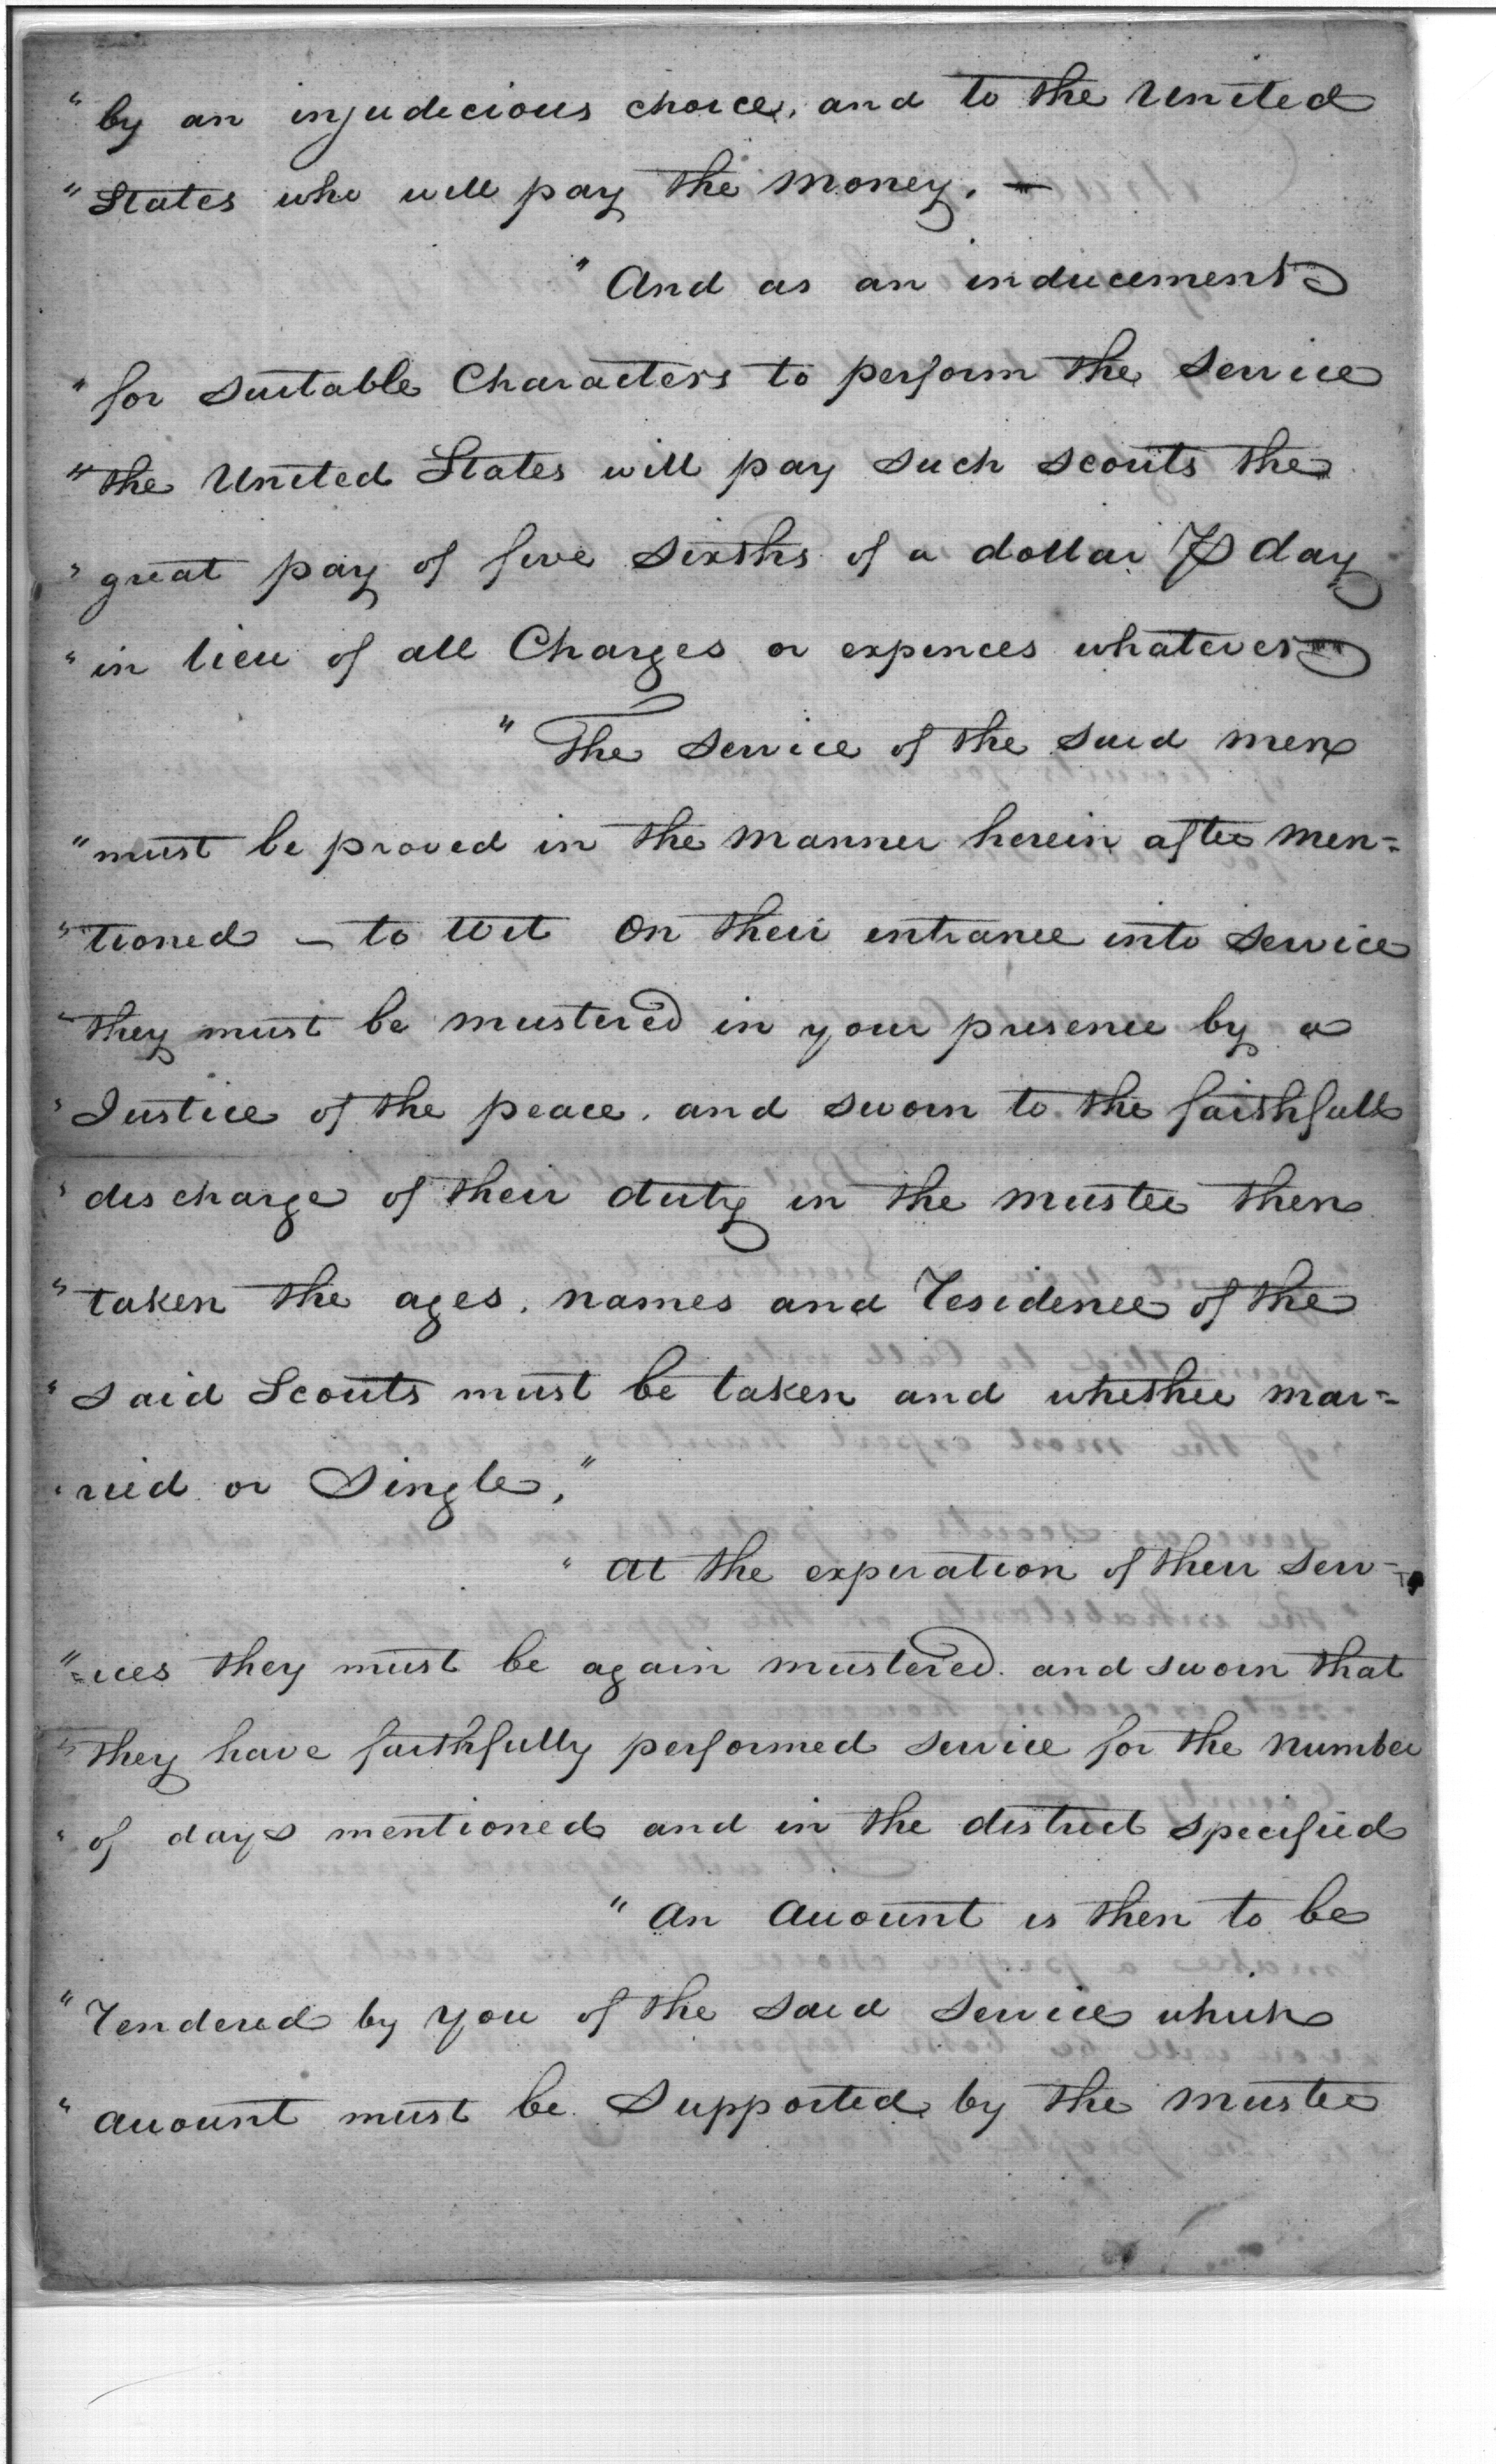 " by an injudicious choice, and to the United
" States who will pay the money. —
" And as an inducement
" for suitable Characters to perform the service
" the United States will pay such scouts the
" great pay of five sixths of a dollar ⅌ day
" in lieu of all Charges or expences whatever
" The service of the said men
" must be proved in the manner herein after men=
" tioned – to wit On their entrance into service
" they must be mustered in your presence by a
" Justice of the peace. and sworn to the faithfull
" discharge of their duty in the muster then
" taken the ages, names and residence of the
" said Scouts must be taken and whether mar=
" ried or Single, "
" at the expiration of their serv=
" =ices they must be again mustered. and sworn that
" they have faithfully performed service for the number
" of days mentioned and in the district specified
" an account is then to be
" rendered by you of the said service which
" account must be supported by the muster